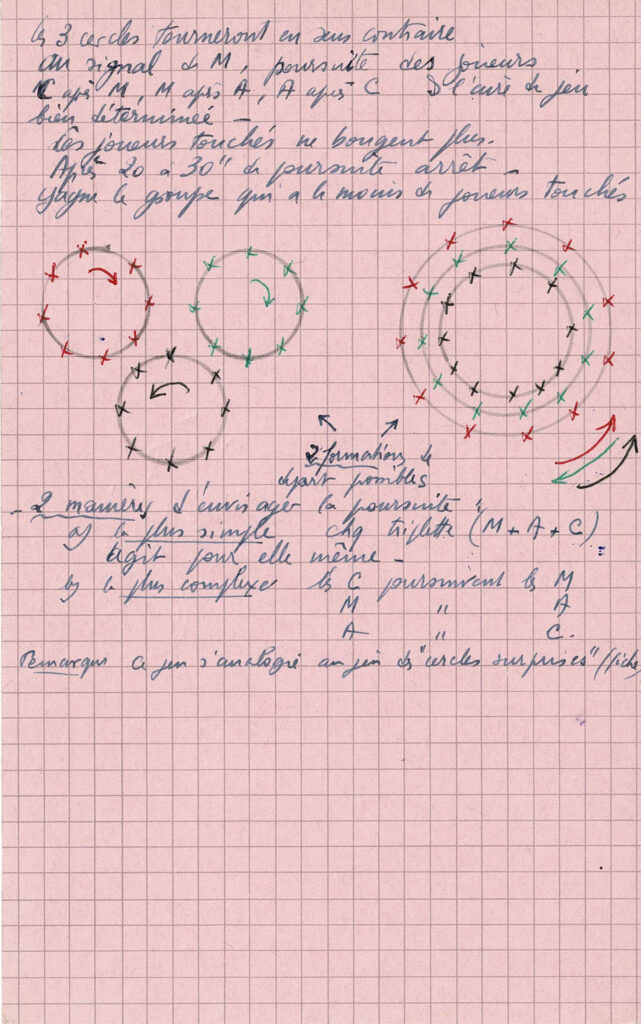 les 3 cercles tourneront en sens contraire
au signal du M, poursuite des joueurs
C après M, M après A, A après C D l'aire de jeu
bien déterminée –
Les joueurs touchés ne bougent plus.
Après 20 à 30" de poursuite arrêt –
gagne le groupe qui a le moins de joueurs touchés
2 formations de
départ possibles
– 2 manières d'envisager la poursuite "
a) la plus simple chq triplette (M + A + C)
agit pour elle même –
b) la plus complexe les C poursuivent les M
M " A
A " C.
Remarque ce jeu s'analogie au jeu des "cercles surprises" (fiche